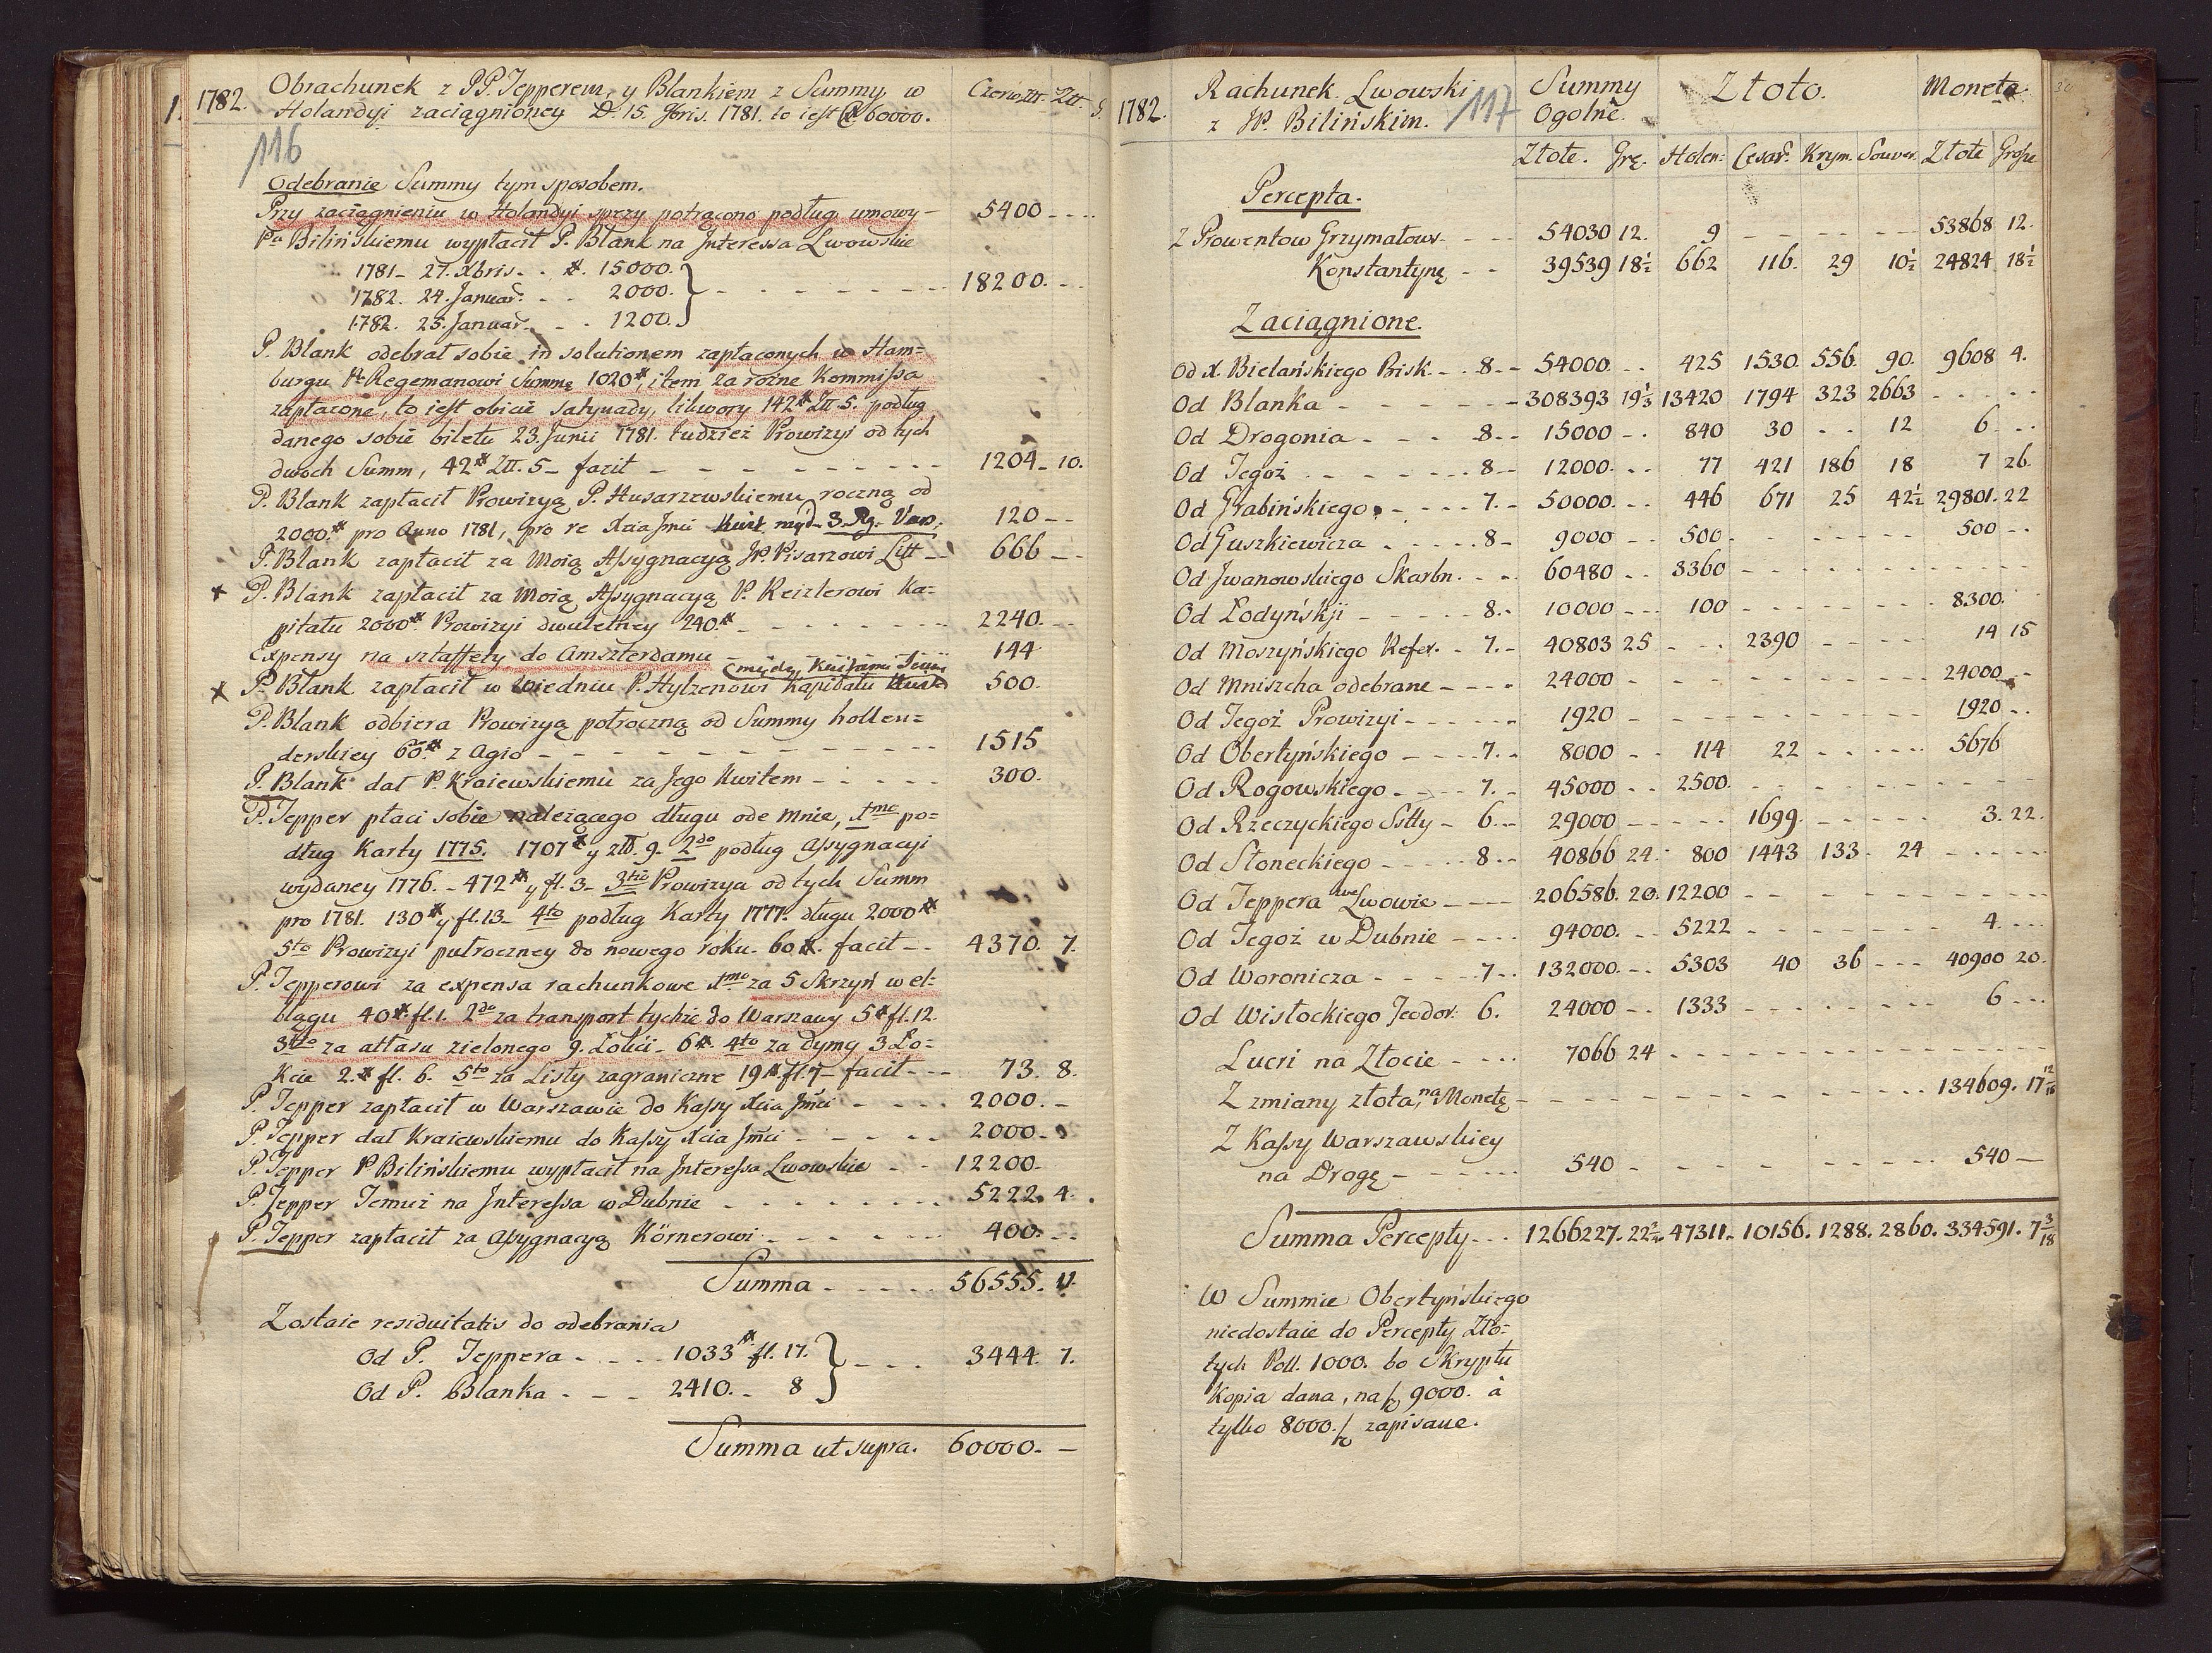 1. 1782. Obrachunek z PP. Tepperem, y Blankiem z Summy, w Czerw. Ztt. Ztt. G.
Holandyi zaciągnioney D. 15. 9bris. 1781. to iest # 60000.
116
Odebranie Summy tym sposobem.
Przy zaciągnieniu w Holandyi sprzy potrącono podług umowy – 5400 – – –
Pu Bilińskiemu wypłacił P. Blank na Interessa Lwowskie
1781 – 27. Xbris – . #. 15000.
1782. 24. Januar. – . . 2000. } – – – – – – 18200. – –
1782. 25. Januar. . – . 1200.
P. Blank odebrał sobie in solutionem zapłaconych w Ham=
burgu P. Regemanowi Summę 1020#, item za rożne Kommissa
zapłacone, to iest obicie satynady, likwory 142# Ztt. 5. podług
danego sobie biletu 23. Junii 1781. tudzież Prowizyi od tych
dwoch Summ, 42# Ztt. 5 – facit – – – – – – – – 1204 – 10.
P. Blank zapłacił Prowizyą P. Husarzewskiemu roczną od
2000.# pro Anno 1781, pro re Xcia Jmci 120 – –
P. Blank zapłacił za Moią Assygnacyą JP. Pisarzowi Litt – 666 – –
x P. Blank zapłacił za Moią Assygnacyą P. Reizlerowi Ka=
pitału 2000#. Prowizyi dwuletniey 240.# – – – – – – – 2240. – –
Expensy na sztaffety do Amszterdamu – – – – – 144
x P. Blank zapłacił w Wiedniu P. Hylzenowi Kapitału 500.
P. Blank odbiera Prowizyą połroczną od Summy hollen=
derskiey 60.# z Agio – – – – – – – – – – 1515
P. Blank dał P. Kraiewskiemu za Jego Kwitem – . – – – 300.
P. Tepper płaci sobie należącego długu ode mnie, 1mo po=
dług Karty 1775. 1707# y ztt. 9. 2do podług assygnacyi
wydaney 1776. – 472# y fl. 3 – 3tio Prowizya od tych Summ
pro 1781. 130# y fl. 13 – 4to podług Karty 1777. długu 2000#
5to Prowizyi pułroczney do nowego roku. 60#. facit – . 4370. 7.
P. Tepperowi za expensa rachunkowe 1mo za 5 Skrzyń w el=
blągu 40# fl. 1. 2do za transport tychże do Warszawy 5# fl. 12.
3tio za attasu zielonego 9. Łokci – 6# 4to za dymy 3 Ło=
kcie 2.# fl. 6. 5to za Listy zagraniczne 19# fl. 7 – facit – – – 73. 8.
P. Tepper zapłacił w Warszawie do Kassy Xcia Jmci – – – – 2000. –
P. Tepper dał Kraiewskiemu do Kassy Xcia Jmci – – – – – 2000 –
P. Tepper P. Bilińskiemu wypłacił na Interessa Lwowskie – – 12200 –
P. Tepper Temuż na Interessa w Dubnie – – – – – – – 5222. 4.
P. Tepper zapłacił za assygnacyą Körnerowi – . – – – – 400. – –
Summa – – – – – 56555. 11.
Zostaie residuitatis do odebrania
Od P. Teppera – . – . . 1033# fl. 17. } – – . . 3444. 7.
Od P. Blanka . – – 2410. – 8
Summa ut supra. 60000. –
1782. Rachunek Lwowski 117 Summy Złoto. Moneta
z JP. Bilińskim. Ogolne.
Złote. Grę. Holen: Cesar. Krym. Souver. Złote Grosze
Percepta.
Z Prowentow Grzymałow. – – – 54030 12. 9 – – – – – – 53868 12.
Konstantynę – – 39539 18½ 662 116. 29 10½ 24824 18½
Zaciągnione.
Od X. Bielańskiego Bisk. – . 8. – – 54000. . . 425 1530. 556. 90. 9608 4.
Od Blanka – – – – – – – 308393 19⅓ 13420 1794 323 2663 . . . . .
Od Drogonia – – . . 8. – – 15000 – . 840 30 . . 12 6 . . .
Od Tegoż . – – – – . 8 – – 12000. . . 77 421 186 18 7 26.
Od Grabińskiego . – – . . 7. – 50000. . . 446 671 25 42½ 29801. 22
Od Guszkiewicza . . – . . 8 – 9000 – . 500 . – – – – 500 – .
Od Iwanowskiego Skarbn. . – . 60480 . . 3360 – – – – – – – –
Od Łodyńskji – – – – 8. . 10000 – – . 100 – – – – – 8300.
Od Moszyńskiego Refer. – 7. – 40803 25 – – . 2390 – – – – – 14 15
Od Mniszcha odebrane – – – . 24000 – – – – – – – – – 24000 – .
Od Tegoż Prowizyi – – – – – . 1920 – – – – – – – – – 1920 . .
Od Obertyńskiego – – – . 7. . 8000 – . 114 22 – – – . . . 5676
Od Rogowskiego . – – – . 7. – 45000 – – 2500. – – – – – – – –
Od Rzeczyckiego Sstty – 6. – . 29000 – – – – – 1699. – – – – – 3. 22.
Od Słoneckiego – – – – – 8. – 40866 24. 800 1443 133. 24 – – – – –
Od Teppera we Lwowie – – – – 206586. 20. 12200 – – – – – – – –
Od Tegoż w Dubnie – – . . 94000. – . 5222 – – – – – – – 4. . . .
Od Woronicza – – – . – 7 – . 132000. – . 5303 40 36 – – – 40900 20.
Od Wisłockiego Teodor: 6. 24000 – . 1333 – – – – – – 6 – . .
Lucri na Złocie – – . . 7066 24 – – – – – – – – – –
Z zmiany złota, na Monetę – – – – – – – – – – – – 134609. 17 12/18
Z Kassy Warszawskiey
na Drogę – – – . . . 540 – – – – – – – – – 540 –
Summa Percepty – . . 1266227. 22¾. 47311. 10156. 1288. 2860. 334591. 7 3/18
W Summie Obertyńskiego
niedostaie do Percepty Zło=
tych Poll. 1000. bo Skryptu
Kopia dana, na f 9000. à
tylko 8000. f zapisane.